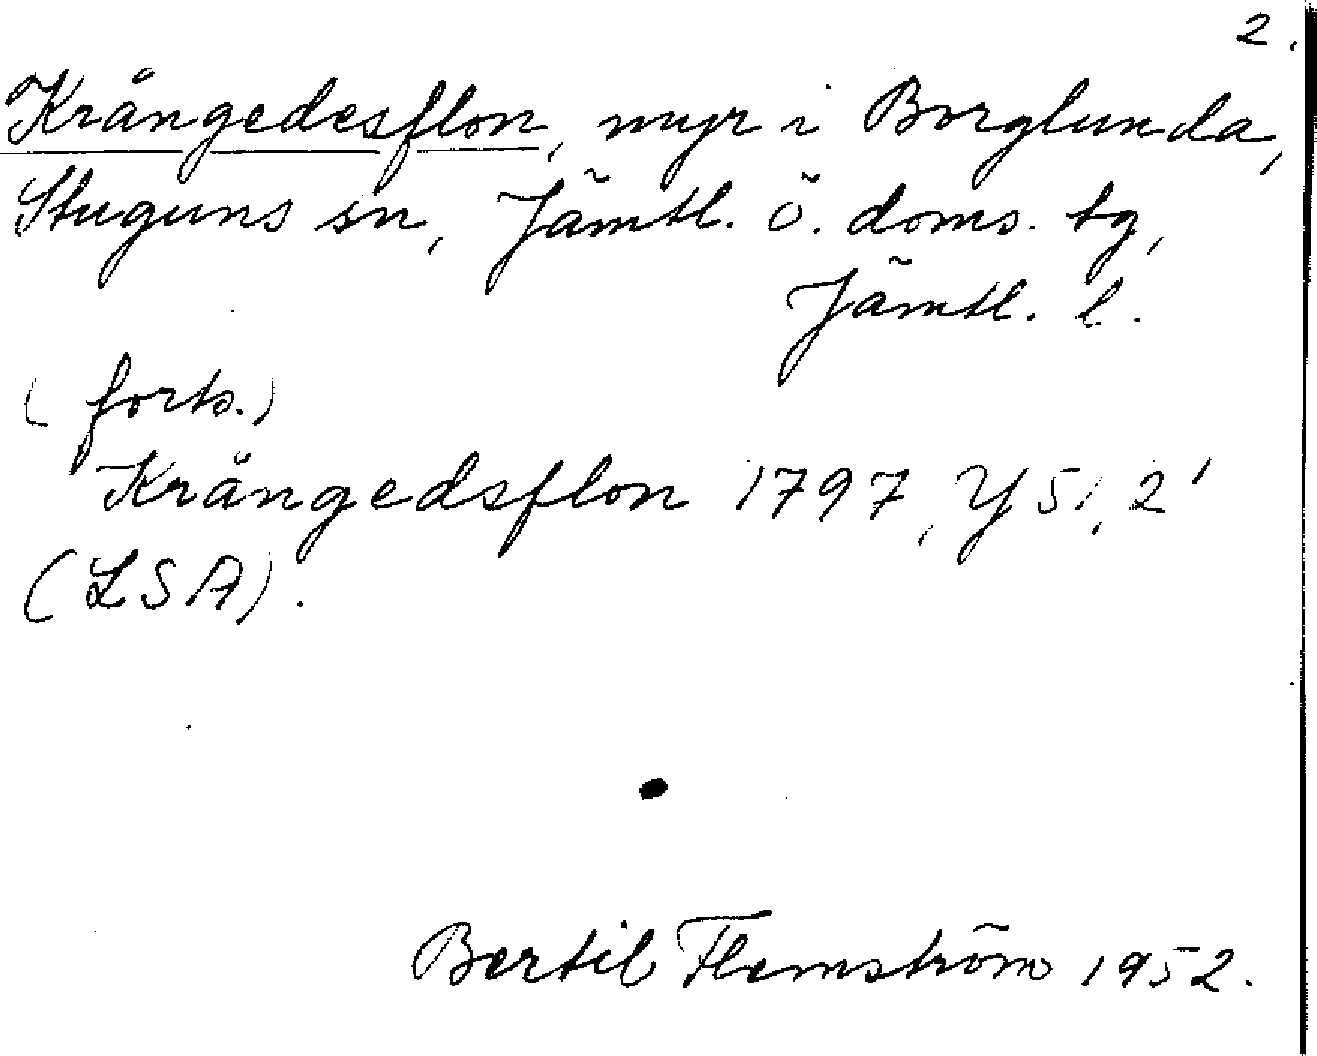 2.
Krångedesflon, myr i Borglunda,
Stuguns sn, Jämtl. ö. doms. tg,
Jämtl. l.
(forts.)
Krångedsflon 1797, Y 51, 2'
(LSA).
Bertil Flemström 1952.